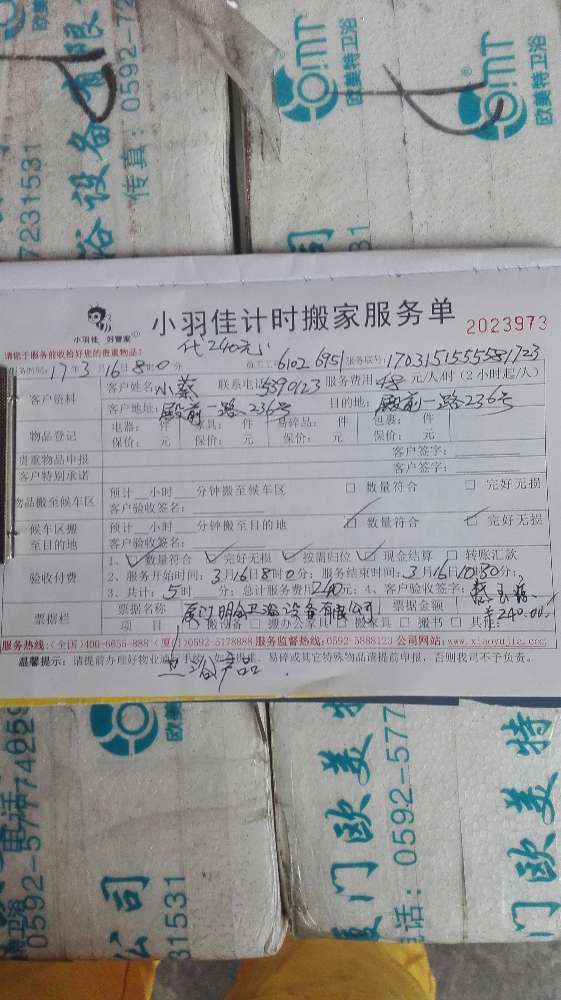 OMT
欧美特卫浴
OMT
欧美特卫浴
浴设备有限
传真：0592-57
7231531
司
31
小羽佳 好管家
小羽佳计时搬家服务单
2023973
代240元
请您于服务前收给好您的贵重物品！
服务时间：17年3月16日8时0分 员工工号：6102 6951 服务联号：1703151555581723
客户资料
客户姓名：小蔡 联系电话：5390123 服务费用：48元/人/时（2小时起/人）
客户地址：殿前一路236号 目的地：殿前一路236号
物品登记
电器： 件 家具： 件 易碎品： 件 包裹： 件
保价： 元 保价： 元 保价： 元 保价： 元
贵重物品申报 客户签字：
客户特别承诺 客户签字：
物品搬至候车区
预计 小时 分钟搬至候车区 □ 数量符合 □ 完好无损
客户验收签名：
候车区搬至目的地
预计 小时 分钟搬至目的地 ☑ 数量符合 ☑ 完好无损
客户验收签名：
验收付费
1、☑ 数量符合 ☑ 完好无损 ☑ 按需归位 ☑ 现金结算 □ 转账汇款
2、服务开始时间：3月16日8时0分；服务结束时间：3月16日10时30分；
3、共计：5时 分；总计服务费用240元；4、客户验收签字：
票据栏
票据名称 厦门明合卫浴设备有限公司 票据金额 ¥240.00
项目 □ 搬设备 □ 搬办公室 □ 搬家具 □ 搬书 □ 其他：
服务热线：（全国）400-6655-888（厦门）0592-5178888 服务监督热线：0592-5888123 公司网站：www.xiaoyujia.com
温馨提示：请提前办理好物业通行手续，如遇贵重、易碎或其它特殊物品请提前申报，否则我司不予负责。
卫浴产品
欧美特卫浴
电话：
0592-5774259
公司
31531
厦门欧美特
电话：0592-577